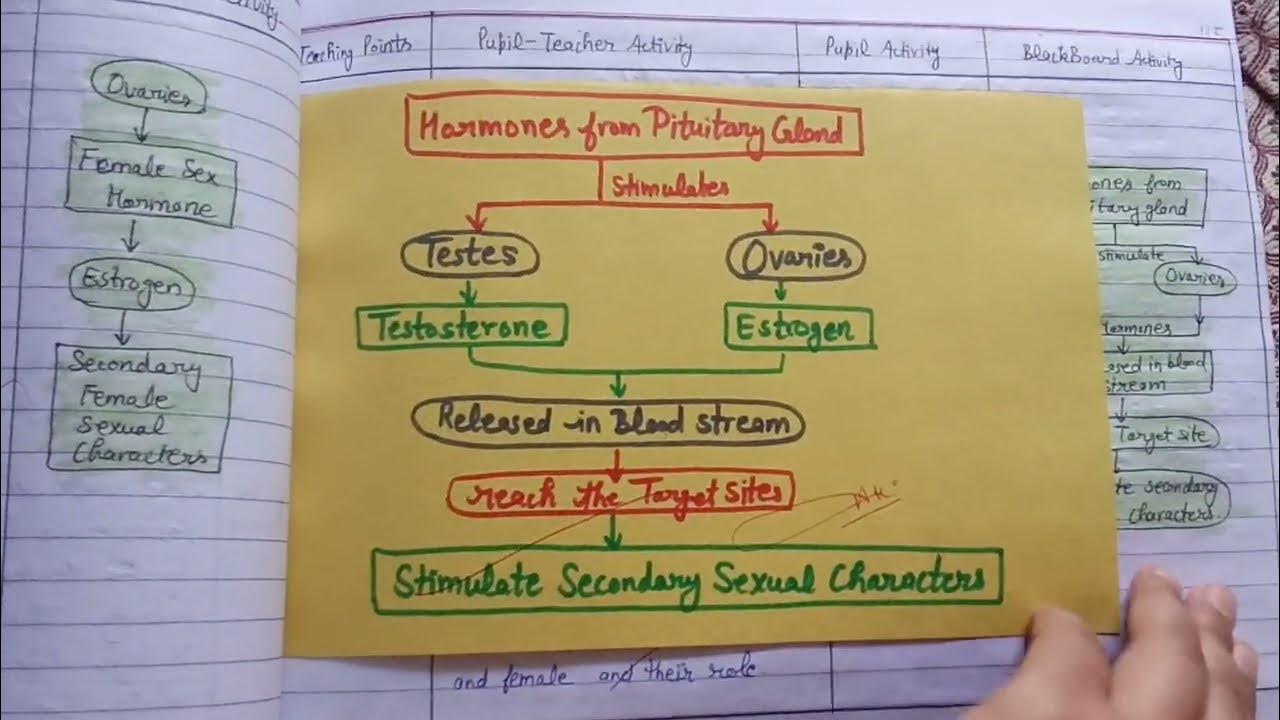 Ovaries
Female Sex
Hormone
Estrogen
Secondary
Female
Sexual
Characters
Teaching Points
Pupil-Teacher Activity
Pupil Activity
BlackBoard Activity
Hormones from Pituitary Gland
Stimulates
Testes
Ovaries
Testosterone
Estrogen
Released in Blood stream
reach the Target Sites
Stimulate Secondary Sexual Characters
from
gland
stimulate
Ovaries
in blood
stream
Target site
secondary
characters
and female and their role